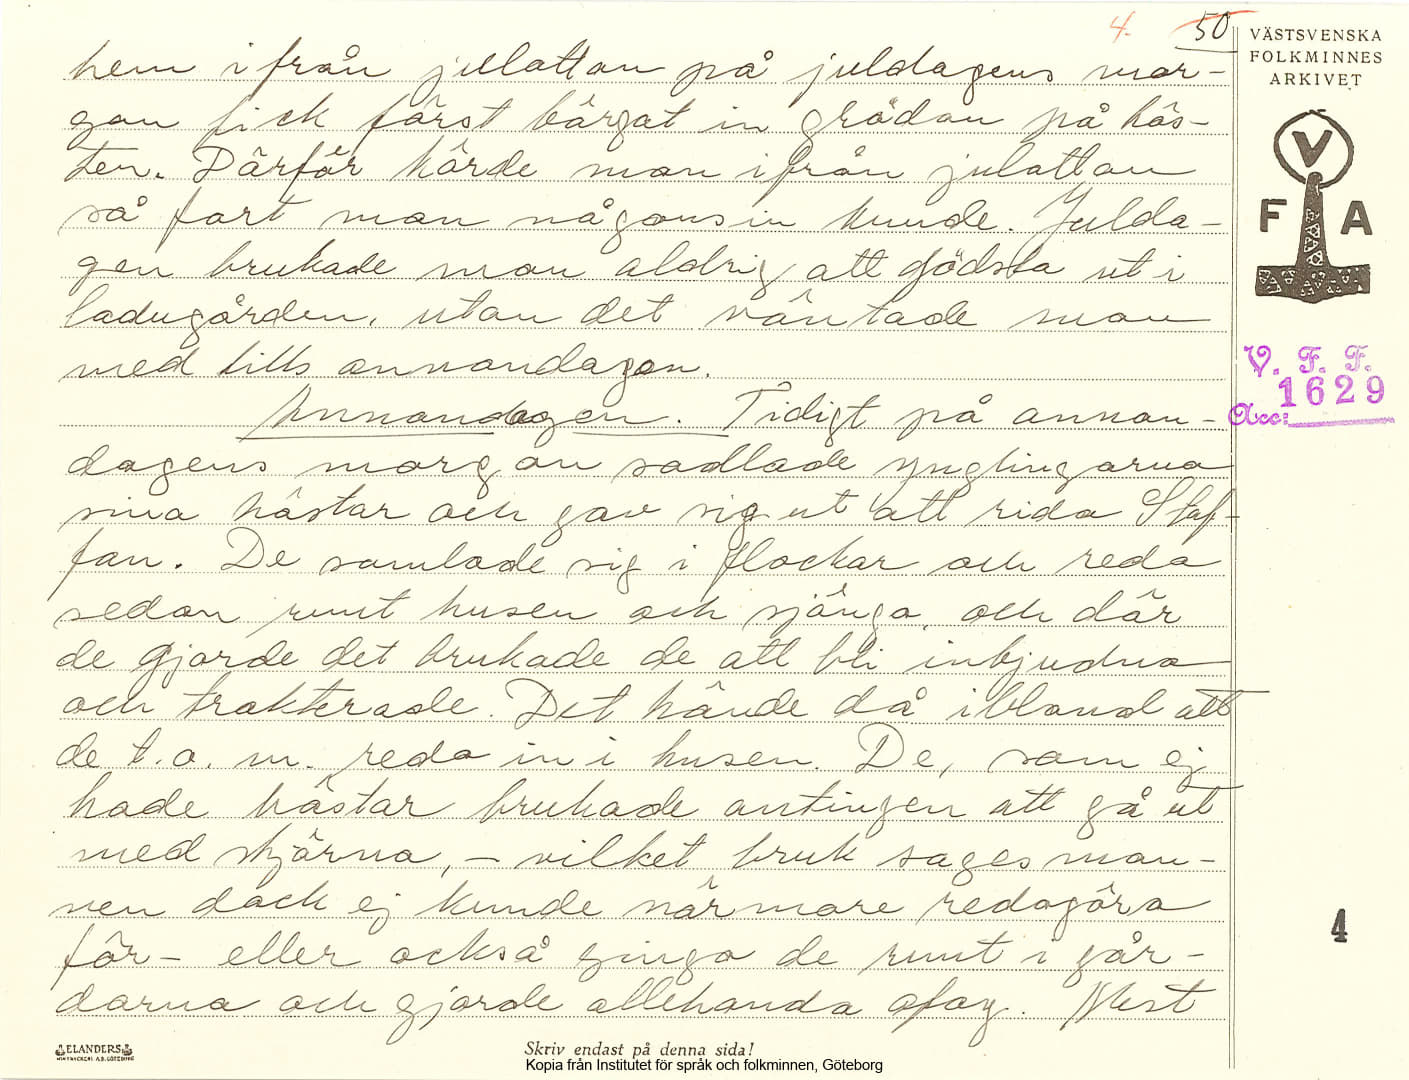 4. 50
VÄSTSVENSKA
FOLKMINNES
ARKIVET
hem ifrån julottan på juldagens mor-
gon fick först bärgat in grödan på hös-
ten. Därför körde man ifrån julottan
så fort man någonsin kunde. Julda-
gen brukade man aldrig att gödsla ut i
ladugården, utan det väntade man
med tills annandagen.
Annandagen. Tidigt på annan-
dagens morgon sadlade ynglingarna
sina hästar och gav sig ut att rida Staf-
fan. De samlade sig i flockar och redo
sedan runt husen och sjöngo, och där
de gjorde det brukade de att bli inbjudna
och trakterade. Det hände då ibland att
de t.o.m. redo in i husen. De, som ej
hade hästar brukade antingen att gå ut
med stjärna, – vilket bruk sagesman-
nen dock ej kunde närmare redogöra
för – eller också gingo de runt i går-
darna och gjorde allehanda ofog. Mest
V F A
V. F. F.
1629
Acc:
4
ELANDERS
Skriv endast på denna sida!
Kopia från Institutet för språk och folkminnen, Göteborg